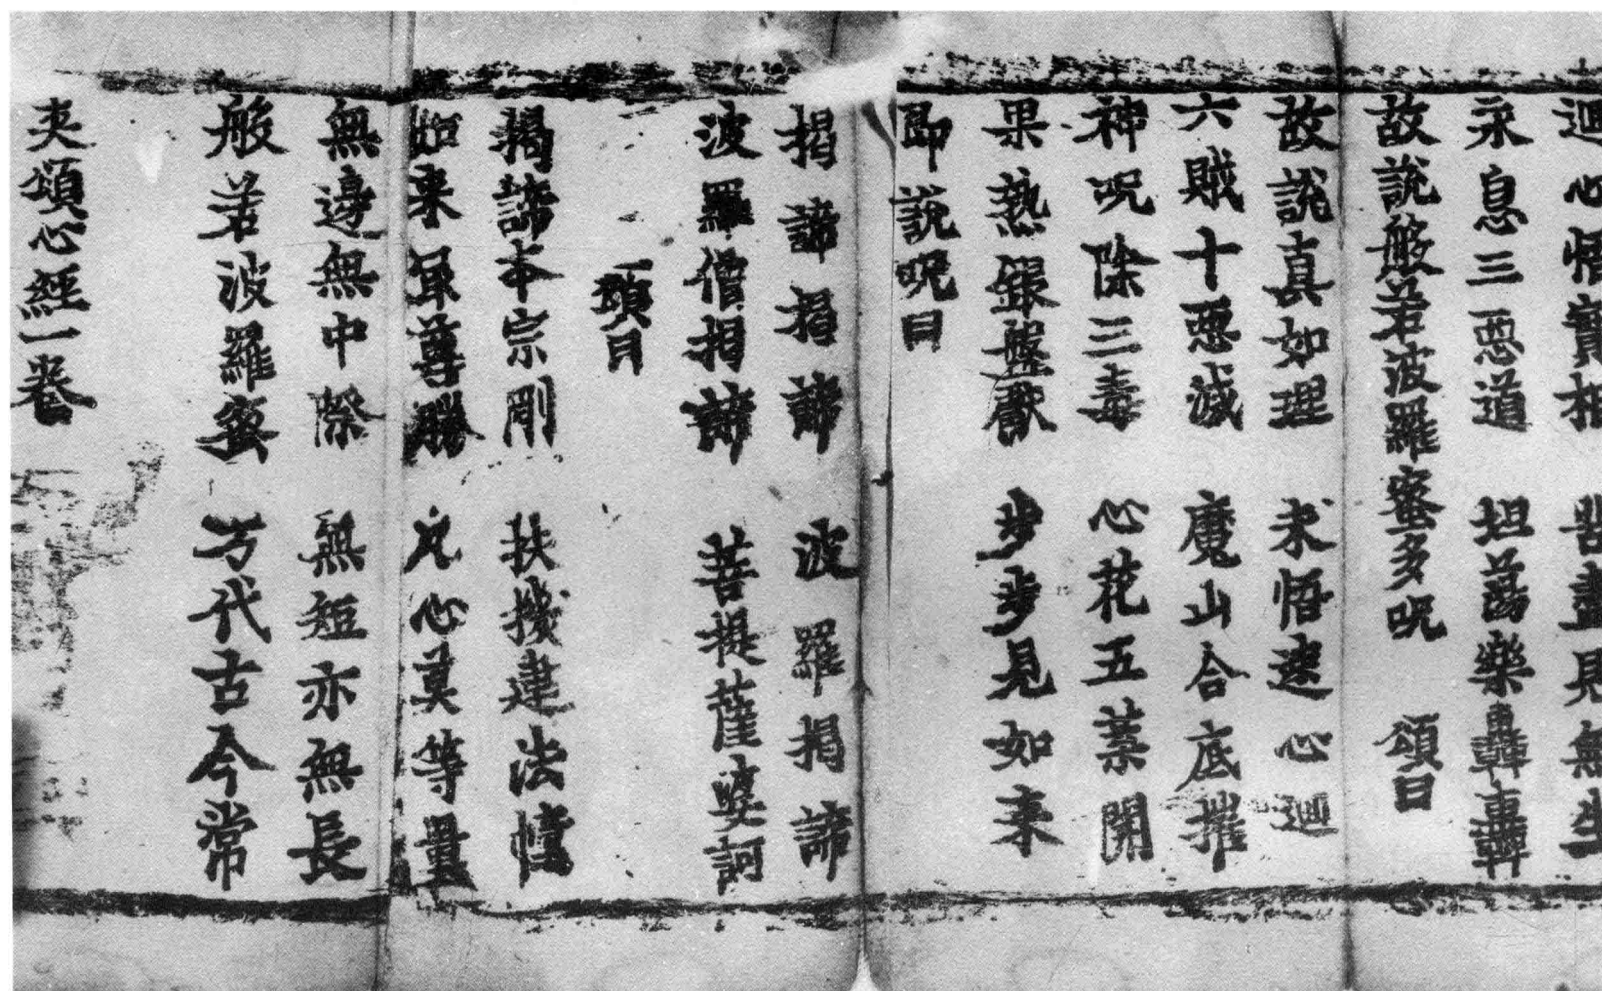 迴心悟實相 苦盡見無生
永息三惡道 坦蕩樂轟轟
故說般若波羅蜜多呪 頌曰
故說真如理 未悟速心迴
六賊十惡滅 魔山合底摧
神呪除三毒 心花五葉開
果熟銀盤獻 步步見如来
即說呪曰
揭諦揭諦 波羅揭諦
波羅僧揭諦 菩提薩婆訶
頌曰
揭諦本宗剛 扶機建法幢
如来最尊勝 凡心莫等量
無邊無中際 無短亦無長
般若波羅蜜 万代古今常
夾頌心經一卷